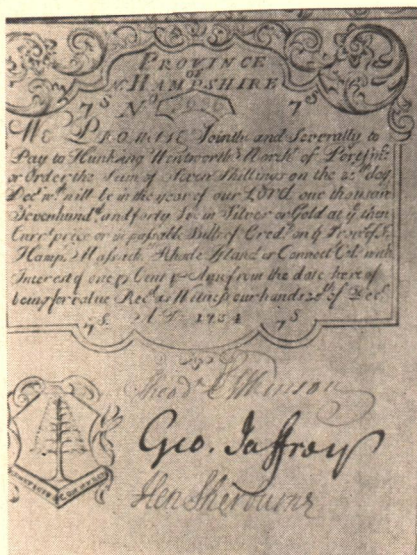 PROVINCE
OF
N. HAMPSHIRE
7S No 7S
WE PROMISE Jointly and Severally to
Pay to Hunking Wentworth March.t of Portsm.o
or Order the Sum of Seven Shillings on the 25.th day
Dec.m.r w.ch will be in the year of our LORD one thousan
Sevenhund.d and forty in Silver or Gold at y.e then
Curr.t price or in passable Bills of Cred.t on y.e Prov.s of N
Hamp. Massach. Rhode Island or Connect. Col. with
Interest of one p Cent p Anu from the date here of
being for value Rec.d as Witness our hands 25.th of Dec.r
7S A D 1734 7S
Theod.r Atkinson
Geo. Jaffrey
Hen Sherburne